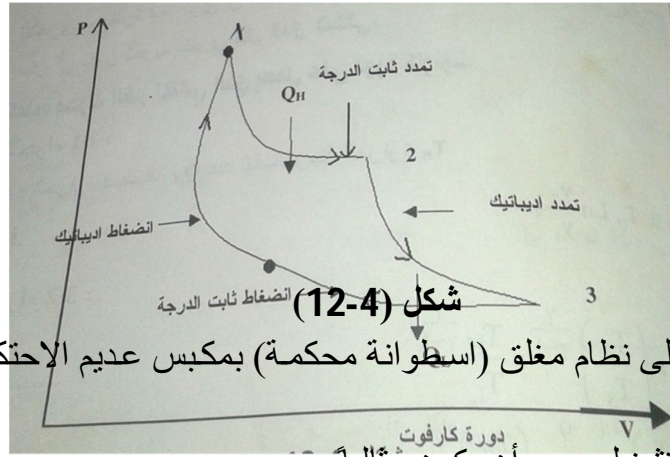 P
1
تمدد ثابت الدرجة
QH
2
تمدد اديباتيك
انضغاط اديباتيك
انضغاط ثابت الدرجة
شكل (4-12)
3
لى نظام مغلق (اسطوانة محكمة) بمكبس عديم الاحتك
دورة كارفوت
V
أن يكون مثالياً